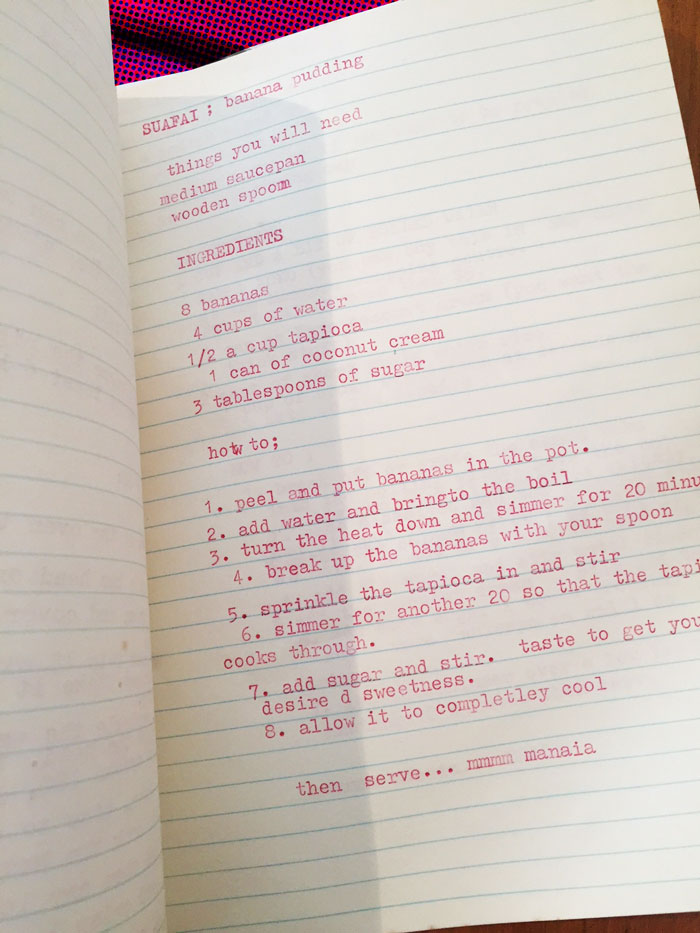 SUAFAI ; banana pudding
things you will need
medium saucepan
wooden spoom
INGREDIENTS
8 bananas
4 cups of water
1/2 a cup tapioca
1 can of coconut cream
3 tablespoons of sugar
how to;
1. peel and put bananas in the pot.
2. add water and bringto the boil
3. turn the heat down and simmer for 20 minu
4. break up the bananas with your spoon
5. sprinkle the tapioca in and stir
6. simmer for another 20 so that the tapi
cooks through.
7. add sugar and stir. taste to get you
desire d sweetness.
8. allow it to completley cool
then serve... mmmm manaia